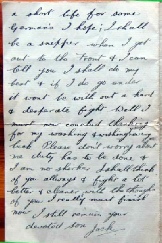 a short life for some
Germans I hope, I shall
be a snapper when I get
out to the Front & I can
tell you I shall do my
best & if I do go under
it wont be without a hard
& desperate fight. Well I
must now
for my washing &
luck Please dont worry about
me duty has to be done &
I am no shirker. I shall think
of you allways & fight a lot
better & cleaner with the thought
of you I really must finish
now I still remain your
devoted son Jack